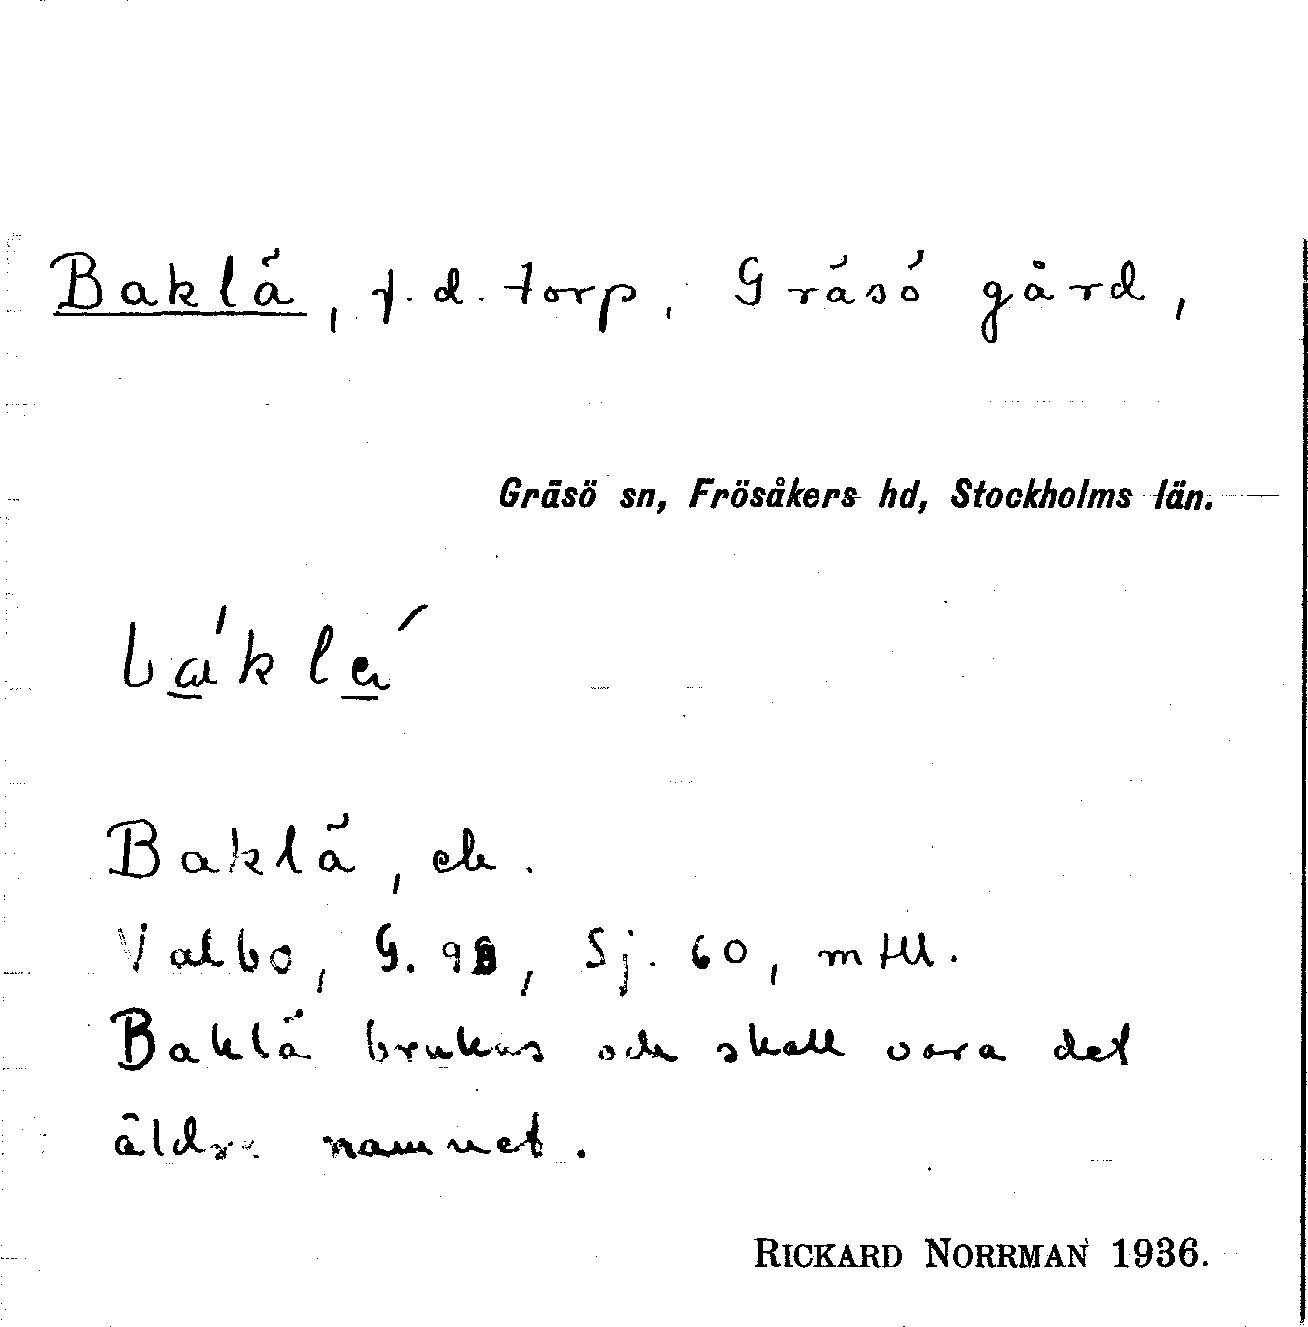 Baklä, f. d. torp, Gräsö gård,
Gräsö sn, Frösåkers hd, Stockholms län.
Baklä, ek.
Valbo, G. 98, Sj. 60, mtll.
Baklä brukas och skall vara det
äldre namnet.
RICKARD NORRMAN 1936.